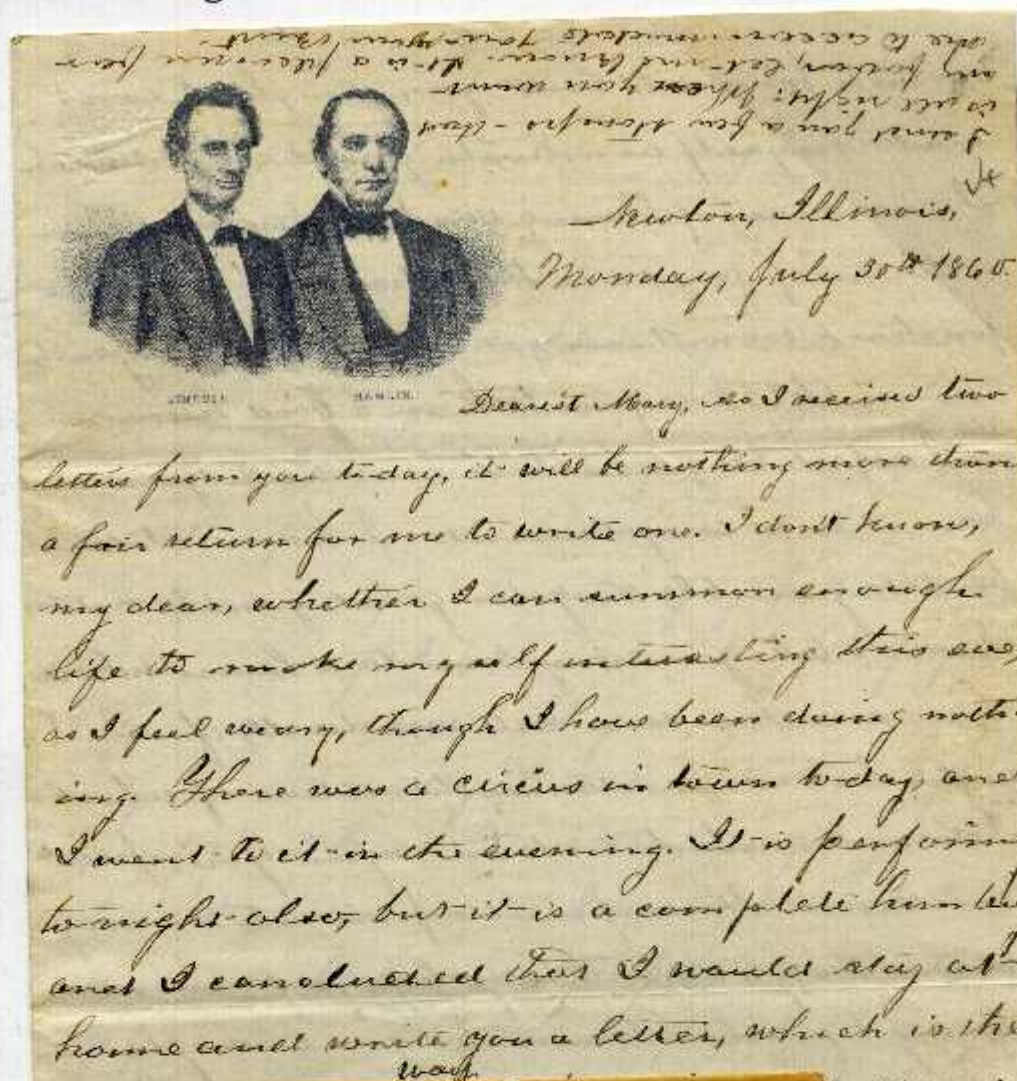 I send you a few stamps - that
is all right: When you want
any favour, let me know. It is a pleasure for
me to accommodate you, you
Newton, Illinois,
Monday, July 30th 1860.
LINCOLN. HAMLIN.
Dearest Mary, As I received two
letters from you to-day, it will be nothing more than
a fair return for me to write one. I don't know,
my dear, whether I can summon enough
life to make myself interesting this eve,
as I feel weary, though I have been doing noth-
ing. There was a circus in town to-day, and
I went to it in the evening. It is perform
to-night also, but it is a complete
and I concluded that I would stay at
home and write you a letter, which is the
way